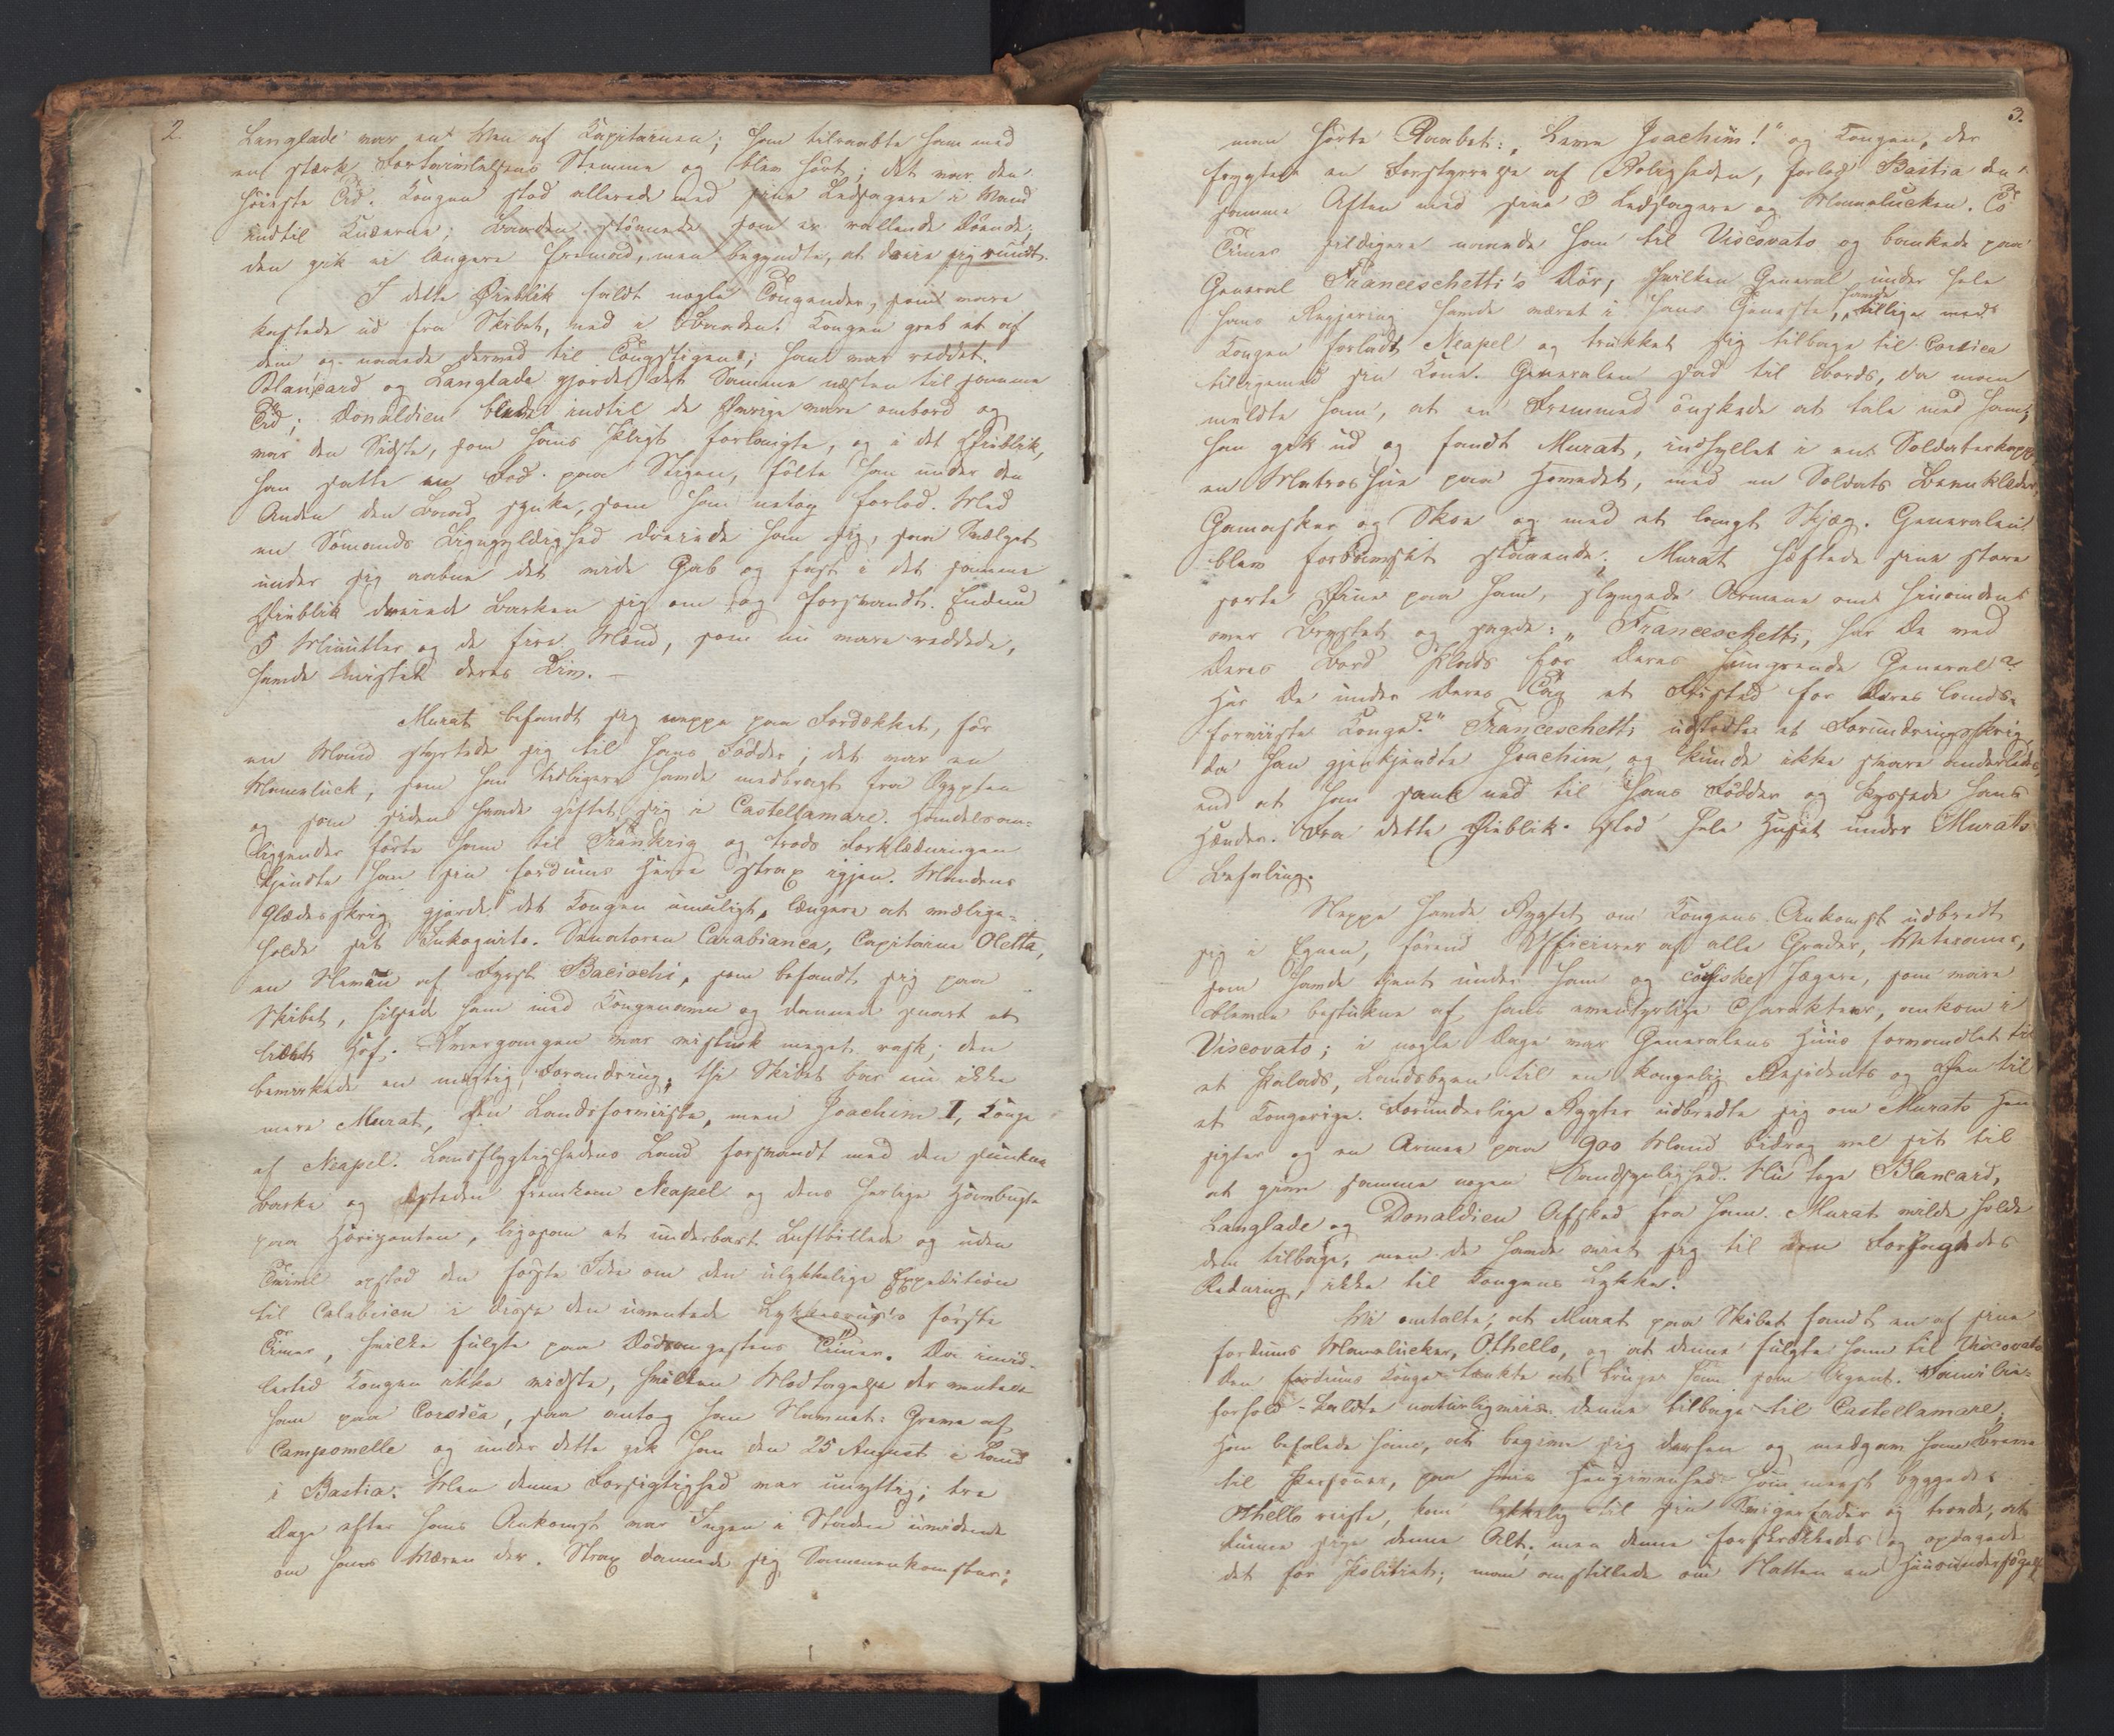 2.
Langlade var en Ven af Kapitainen; han tilraabte ham med
en stærk Fortvivlelsens Stemme og blev hørt; det var den
høieste Tid. Kongen stod allerede med sine Ledsagere i Vand
indtil Knæerne; Baaden stönnede som en rallende Döende;
den gik ei længere fremad, men begyndte, at dreie sig rundt.
I dette Øieblik faldt nogle Tougender, som vare
kastede ud fra Skibet, ned i Baaden. Kongen greb et af
dem og naaede dermed til Tougstigen; han var reddet.
Blancard og Langlade gjorde det Samme næsten til samme
Tid; Donaldieu blev indtil de Øvrige vare ombord og
var den Sidste, som hans Pligt forlangte, og i det Øieblik,
han satte en Fod paa Stigen, følte han under den
Anden den Baad synke, som han netop forlod. Med
en Sömands Ligegyldighed dreiede han sig, saa Svælget
under sig aabne det vide Gab og fast i det samme
Øieblik dreiede Barken sig om og forsvandt. Endnu
5 Minutter og de fire Mænd, som nu vare reddede,
havde mistet deres Liv. –
Murat befandt sig neppe paa Fordækket, för
en Mand styrtede sig til hans Födder; det var en
Mameluck, som han tidligere havde medbragt fra Ægypten
og som siden havde giftet sig i Castellamare. Handelsan-
liggender førte ham til Frankrig og trods Forklædningen
kjendte han sin fordums Herre strax igjen. Mandens
Glædesskrig gjorde det Kongen umuligt, længere at vedlige-
holde sit Inkognito. Senatoren Carabianca, Capitaine Oletta,
en Neveu af Fyrst Baciochi, som befandt sig paa
Skibet, hilsede ham med Kongenavn og dannede snart et
lidet Hof. Overgangen var mistænk meget rask; den
bemærkede en mægtig Forandring, thi Skibet bar nu ikke
mere Murat, den Landsforviiste, men Joachim I, Konge
af Neapel. Landflygtighedens Land forsvandt med den sunkne
Barke og isteden fremkom Neapel og dens herlige Havbugt
paa Horizonten, ligesom et underbart Luftbillede og uden
Tvivl opstod den første Idee om den ulykkelige Expedition
til Calabrien i disse den uventede Lykkeruus's første
Timer, hvilke fulgte paa Dødsangstens Timer. Da imid-
lertid Kongen ikke vidste, hvilken Modtagelse der ventede
ham paa Corsica, saa antog han Navnet: Greve af
Campomelle og under dette gik han den 25 August i Land
i Bastia. Men denne Forsigtighed var unyttig; tre
Dage efter hans Ankomst var Ingen i Staden uvidende
om hans Væren der. Strax dannede sig Sammenkomster;
3.
man hörte Raabet: „Leve Joachim!“ og Kongen, der
frygtede en Forstyrrelse af Roligheden, forlod Bastia den
samme Aften med sine 3 Ledsagere og Mamelucken. To
Timer sildigere naaede han til Viscovato og bankede paa
General Franceschetti's Dör, hvilken General under hele
hans Regjering havde været i hans Tjeneste, havde tillige med
Kongen forladt Neapel og trukket sig tilbage til Corsica
tilligemed sin Kone. Generalen sad til Bords, da man
meldte ham, at en Fremmed önskede at tale med ham;
han gik ud og fandt Murat, indhyllet i en Soldaterkappe,
en Matroshue paa Hovedet, med en Soldats Beenklæder,
Gamasker og Skoe og med et langt Skjæg. Generalen
blev forbauset staaende; Murat hæftede sine store
sorte Øine paa ham, slyngede Armene om hinanden
over Brystet og sagde: „Franceschetti, har De ved
Deres Bord Plads for Deres hungrende General?
Har De under Deres Tag et Fristed for Deres lands-
forviiste Konge?“ Franceschetti udstödte et Forundringsskrig,
da han gjenkjendte Joachim, og kunde ikke svare anderledes,
end at han sank ned til hans Födder og kyssede hans
Hænder. Fra dette Øieblik stod hele Huset under Murats
Befaling.
Neppe havde Rygtet om Kongens Ankomst udbredt
sig i Egnen, förend Officierer af alle Grader, Veteraner,
som havde tjent under ham og corsiske Jægere, som vare
blevne bestukne af hans eventyrlige Charakteer, ankom i
Viscovato; i nogle Dage var Generalens Huus forvandlet til
et Palads, Landsbyen til en kongelig Residents og Øen til
et Kongerige. Forunderlige Rygter udbredte sig om Murats Hen-
sigter og en Armee paa 900 Mand bidrog vel sit til
at give samme nogen Sandsynlighed. Nu toge Blancard,
Langlade og Donaldieu Afsked fra ham. Murat vilde holde
dem tilbage, men de havde viet sig til den Forjagedes
Redning, ikke til Kongens Lykke.
Vi omtalte, at Murat paa Skibet fandt en af sine
fordums Mamelucker, Othello, og at denne fulgte ham til Viscovato
Den fordums Konge tænkte at bruge ham som Agent. Familie-
forhold kaldte naturligviis denne tilbage til Castellamare;
han befalede ham, at begive sig derhen og medgav ham Breve
til Personer, paa hvis Hengivenhed han meest byggede.
Othello reiste, kom lykkelig til sin Svigerfader og troede, at
kunne sige denne Alt; men denne forskrækkedes og opdagede
det for Politiet; man anstillede om Natten en Huusundersögelse